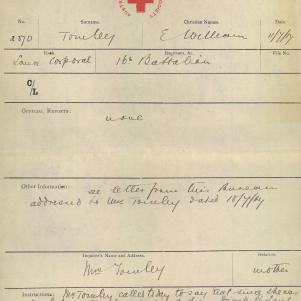 No. Surname. Christian Names. Date.
2570 Tomley E William 11/7/17
Rank. Regiment, &c. File No.
Lance Corporal 16th Battalion
C/L
OFFICIAL REPORTS:
none
Other Information: see letter from this Bureau
addressed to Mrs Tomley dated 10/7/17
Inquirer's Name and Address. Relation.
Mrs Tomley mother
Instructions: Mrs Tomley called today to say that since she